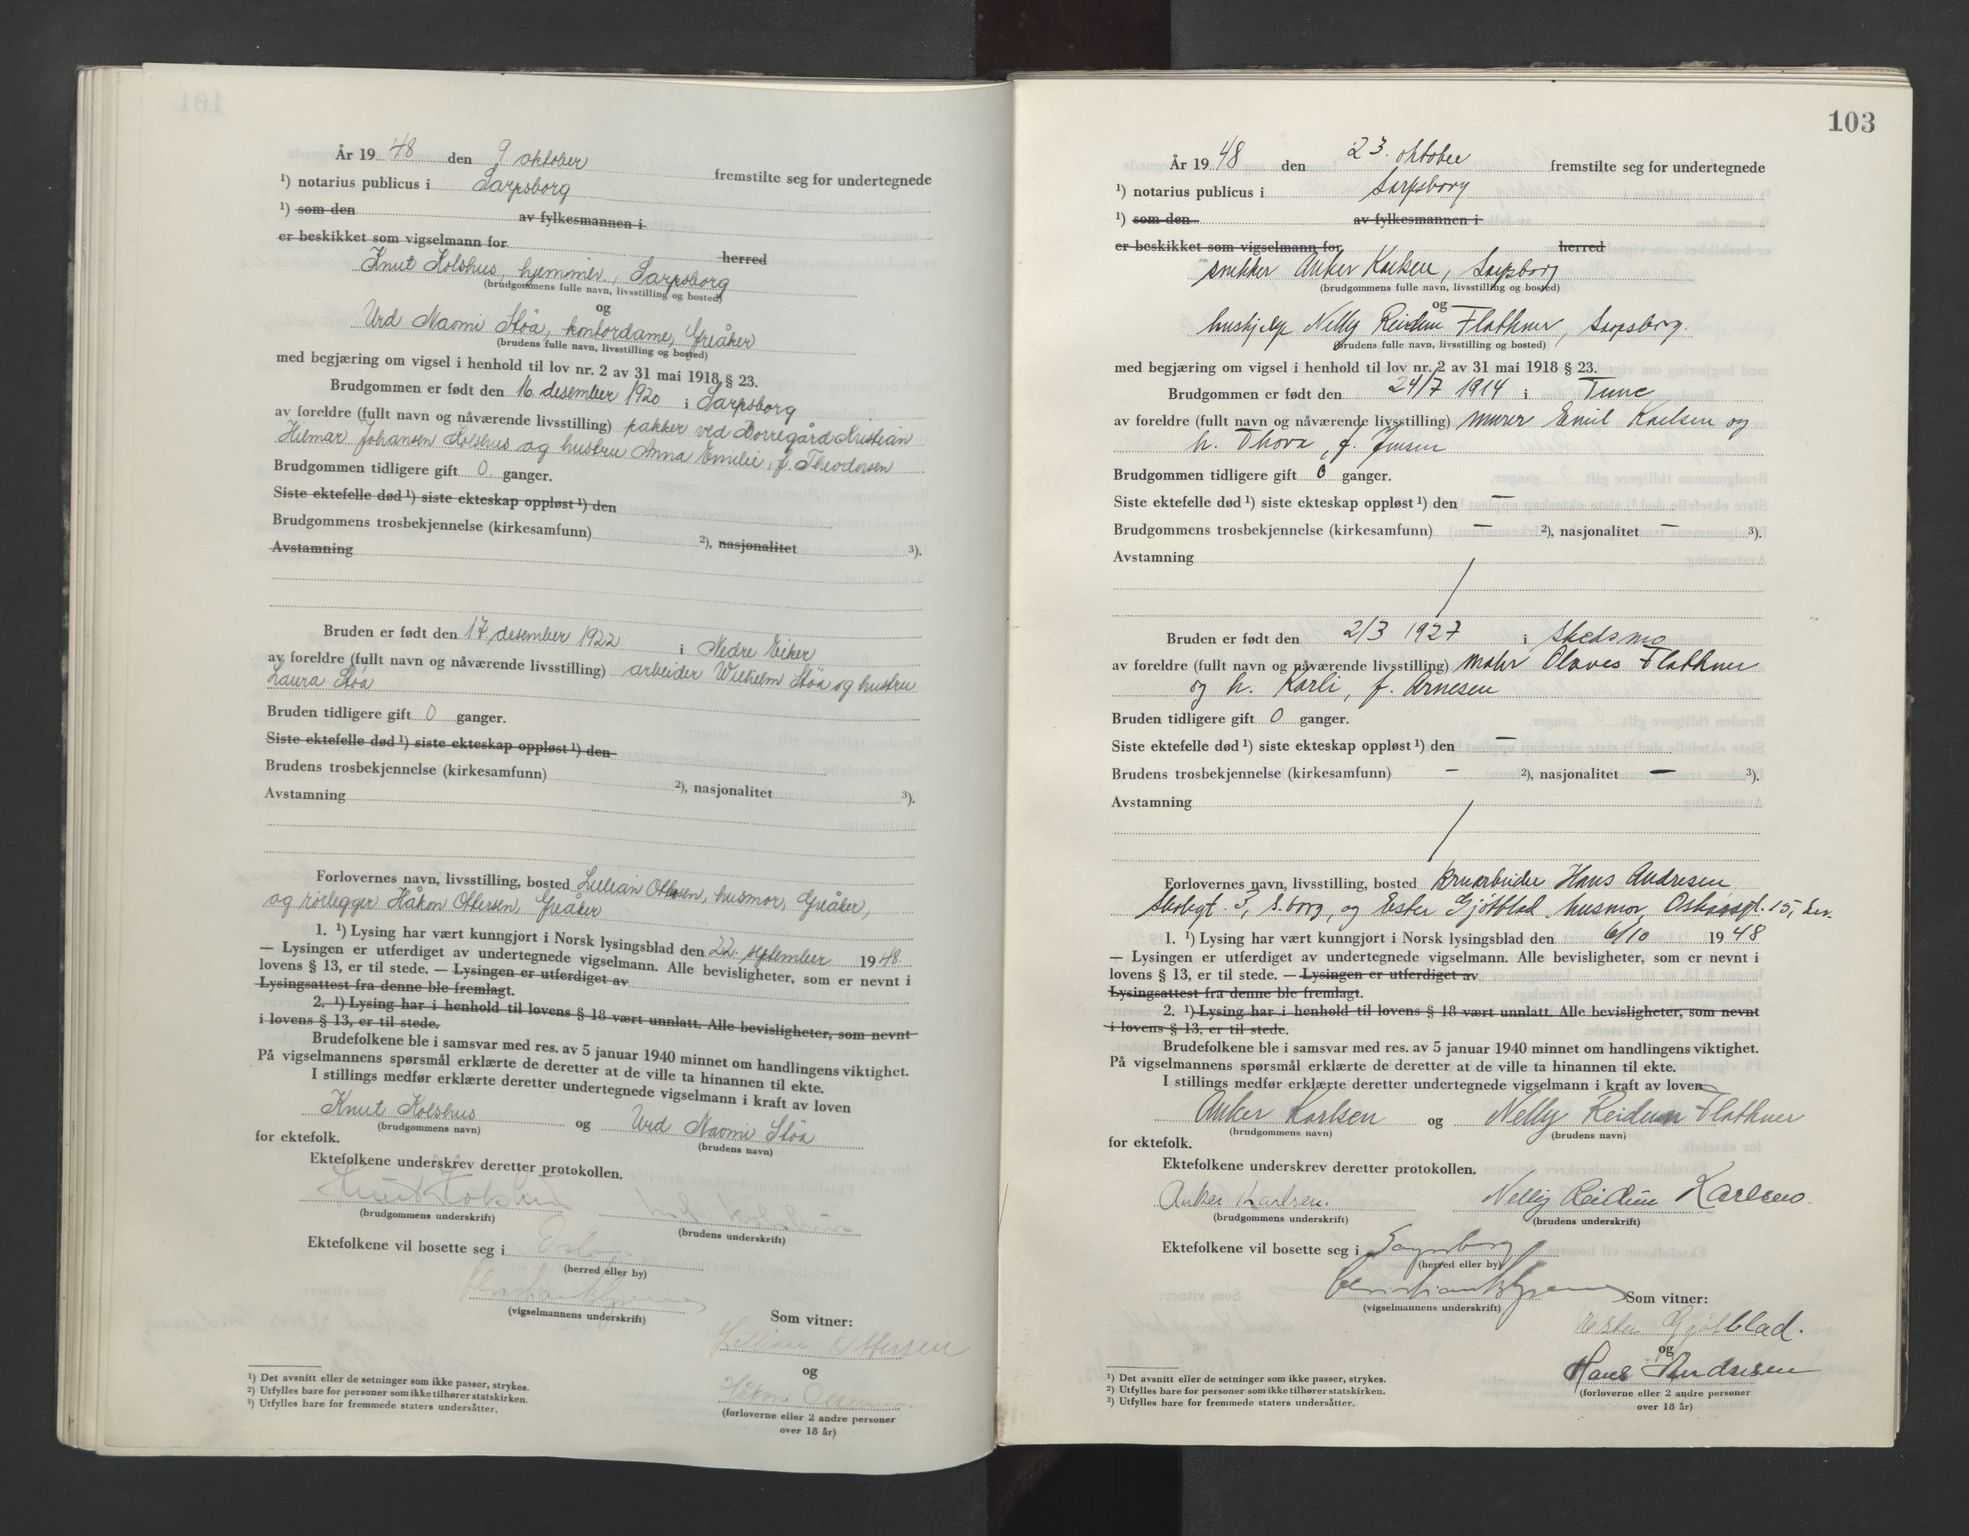 År 19 48 den 9 oktober
fremstilte seg for undertegnede
¹) notarius publicus i Sarpsborg
¹) som den av fylkesmannen i
er beskikket som vigselmann for herred
Knut Kolshus, hjemmev., Sarpsborg
(brudgommens fulle navn, livsstilling og bosted)
og
Urd Naomi Støa, kontordame, Greåker
(brudens fulle navn, livsstilling og bosted)
med begjæring om vigsel i henhold til lov nr. 2 av 31 mai 1918 § 23.
Brudgommen er født den 16. desember 1920 i Sarpsborg
av foreldre (fullt navn og nåværende livsstilling) pakker ved Borregård Kristian
Hilmar Johansen Kolshus og hustru Anna Emilie, f. Theodorsen
Brudgommen tidligere gift 0 ganger.
Siste ektefelle død ¹) siste ekteskap oppløst ¹) den
Brudgommens trosbekjennelse (kirkesamfunn) ²), nasjonalitet ³).
Avstamning
Bruden er født den 17. desember 1922 i Nedre Eiker
av foreldre (fullt navn og nåværende livsstilling) arbeider Wilhelm Støa og hustru
Laura Støa
Bruden tidligere gift 0 ganger.
Siste ektefelle død ¹) siste ekteskap oppløst ¹) den
Brudens trosbekjennelse (kirkesamfunn) ²), nasjonalitet ³).
Avstamning
Forlovernes navn, livsstilling, bosted Lillian Ottersen, husmor, Greåker,
og rørlegger Håkon Ottersen, Greåker
1. ¹) Lysing har vært kunngjort i Norsk lysingsblad den 22. september 19 48.
— Lysingen er utferdiget av undertegnede vigselmann. Alle bevisligheter, som er nevnt i
lovens § 13, er til stede. — Lysingen er utferdiget av
Lysingsattest fra denne ble fremlagt.
2. ¹) Lysing har i henhold til lovens § 18 vært unnlatt. Alle bevisligheter, som nevnt
i lovens § 13, er til stede.
Brudefolkene ble i samsvar med res. av 5 januar 1940 minnet om handlingens viktighet.
På vigselmannens spørsmål erklærte de deretter at de ville ta hinannen til ekte.
I stillings medfør erklærte deretter undertegnede vigselmann i kraft av loven
Knut Kolshus og Urd Naomi Støa
(brudgommens navn) (brudens navn)
for ektefolk.
Ektefolkene underskrev deretter protokollen.
Knut Kolshus
(brudgommens underskrift) (brudens underskrift)
Ektefolkene vil bosette seg i Oslo
(herred eller by)
(vigselmannens underskrift)
Som vitner:
Lillian Ottersen
og
Håkon Ottersen.
(forloverne eller 2 andre personer
over 18 år)
¹) Det avsnitt eller de setninger som ikke passer, strykes.
²) Utfylles bare for personer som ikke tilhører statskirken.
³) Utfylles bare for fremmede staters undersåtter.
103
År 19 48 den 23. oktober fremstilte seg for undertegnede
¹) notarius publicus i Sarpsborg
¹) som den av fylkesmannen i
er beskikket som vigselmann for herred
snekker Anker Karlsen, Sarpsborg
(brudgommens fulle navn, livsstilling og bosted)
og
hushjelp Nelly Reidun Flathner, Sarpsborg.
(brudens fulle navn, livsstilling og bosted)
med begjæring om vigsel i henhold til lov nr. 2 av 31 mai 1918 § 23.
Brudgommen er født den 24/7 1914 i Tune
av foreldre (fullt navn og nåværende livsstilling) murer Emil Karlsen og
h. Thora, f. Jensen
Brudgommen tidligere gift 0 ganger.
Siste ektefelle død ¹) siste ekteskap oppløst ¹) den —
Brudgommens trosbekjennelse (kirkesamfunn) — ²), nasjonalitet — ³).
Avstamning
Bruden er født den 2/3 1927 i Skedsmo
av foreldre (fullt navn og nåværende livsstilling) maler Olaves Flathner
og h. Karli, f. Arnesen
Bruden tidligere gift 0 ganger.
Siste ektefelle død ¹) siste ekteskap oppløst ¹) den —
Brudens trosbekjennelse (kirkesamfunn) — ²), nasjonalitet — ³).
Avstamning
Forlovernes navn, livsstilling, bosted Hans Andresen
3, S.borg, og Ester Gjøtblad, husmor, Oskarsgt. 15,
1. ¹) Lysing har vært kunngjort i Norsk lysingsblad den 6/10 19 48
— Lysingen er utferdiget av undertegnede vigselmann. Alle bevisligheter, som er nevnt i
lovens § 13, er til stede. — Lysingen er utferdiget av
Lysingsattest fra denne ble fremlagt.
2. ¹) Lysing har i henhold til lovens § 18 vært unnlatt. Alle bevisligheter, som nevnt
i lovens § 13, er til stede.
Brudefolkene ble i samsvar med res. av 5 januar 1940 minnet om handlingens viktighet.
På vigselmannens spørsmål erklærte de deretter at de ville ta hinannen til ekte.
I stillings medfør erklærte deretter undertegnede vigselmann i kraft av loven
Anker Karlsen og Nelly Reidun Flathner
(brudgommens navn) (brudens navn)
for ektefolk.
Ektefolkene underskrev deretter protokollen.
Anker Karlsen. Nelly Reidun Karlsen.
(brudgommens underskrift) (brudens underskrift)
Ektefolkene vil bosette seg i Sarpsborg
(herred eller by)
(vigselmannens underskrift)
Som vitner:
Ester Gjøtblad.
og
Hans Andresen
(forloverne eller 2 andre personer
over 18 år)
¹) Det avsnitt eller de setninger som ikke passer, strykes.
²) Utfylles bare for personer som ikke tilhører statskirken.
³) Utfylles bare for fremmede staters undersåtter.